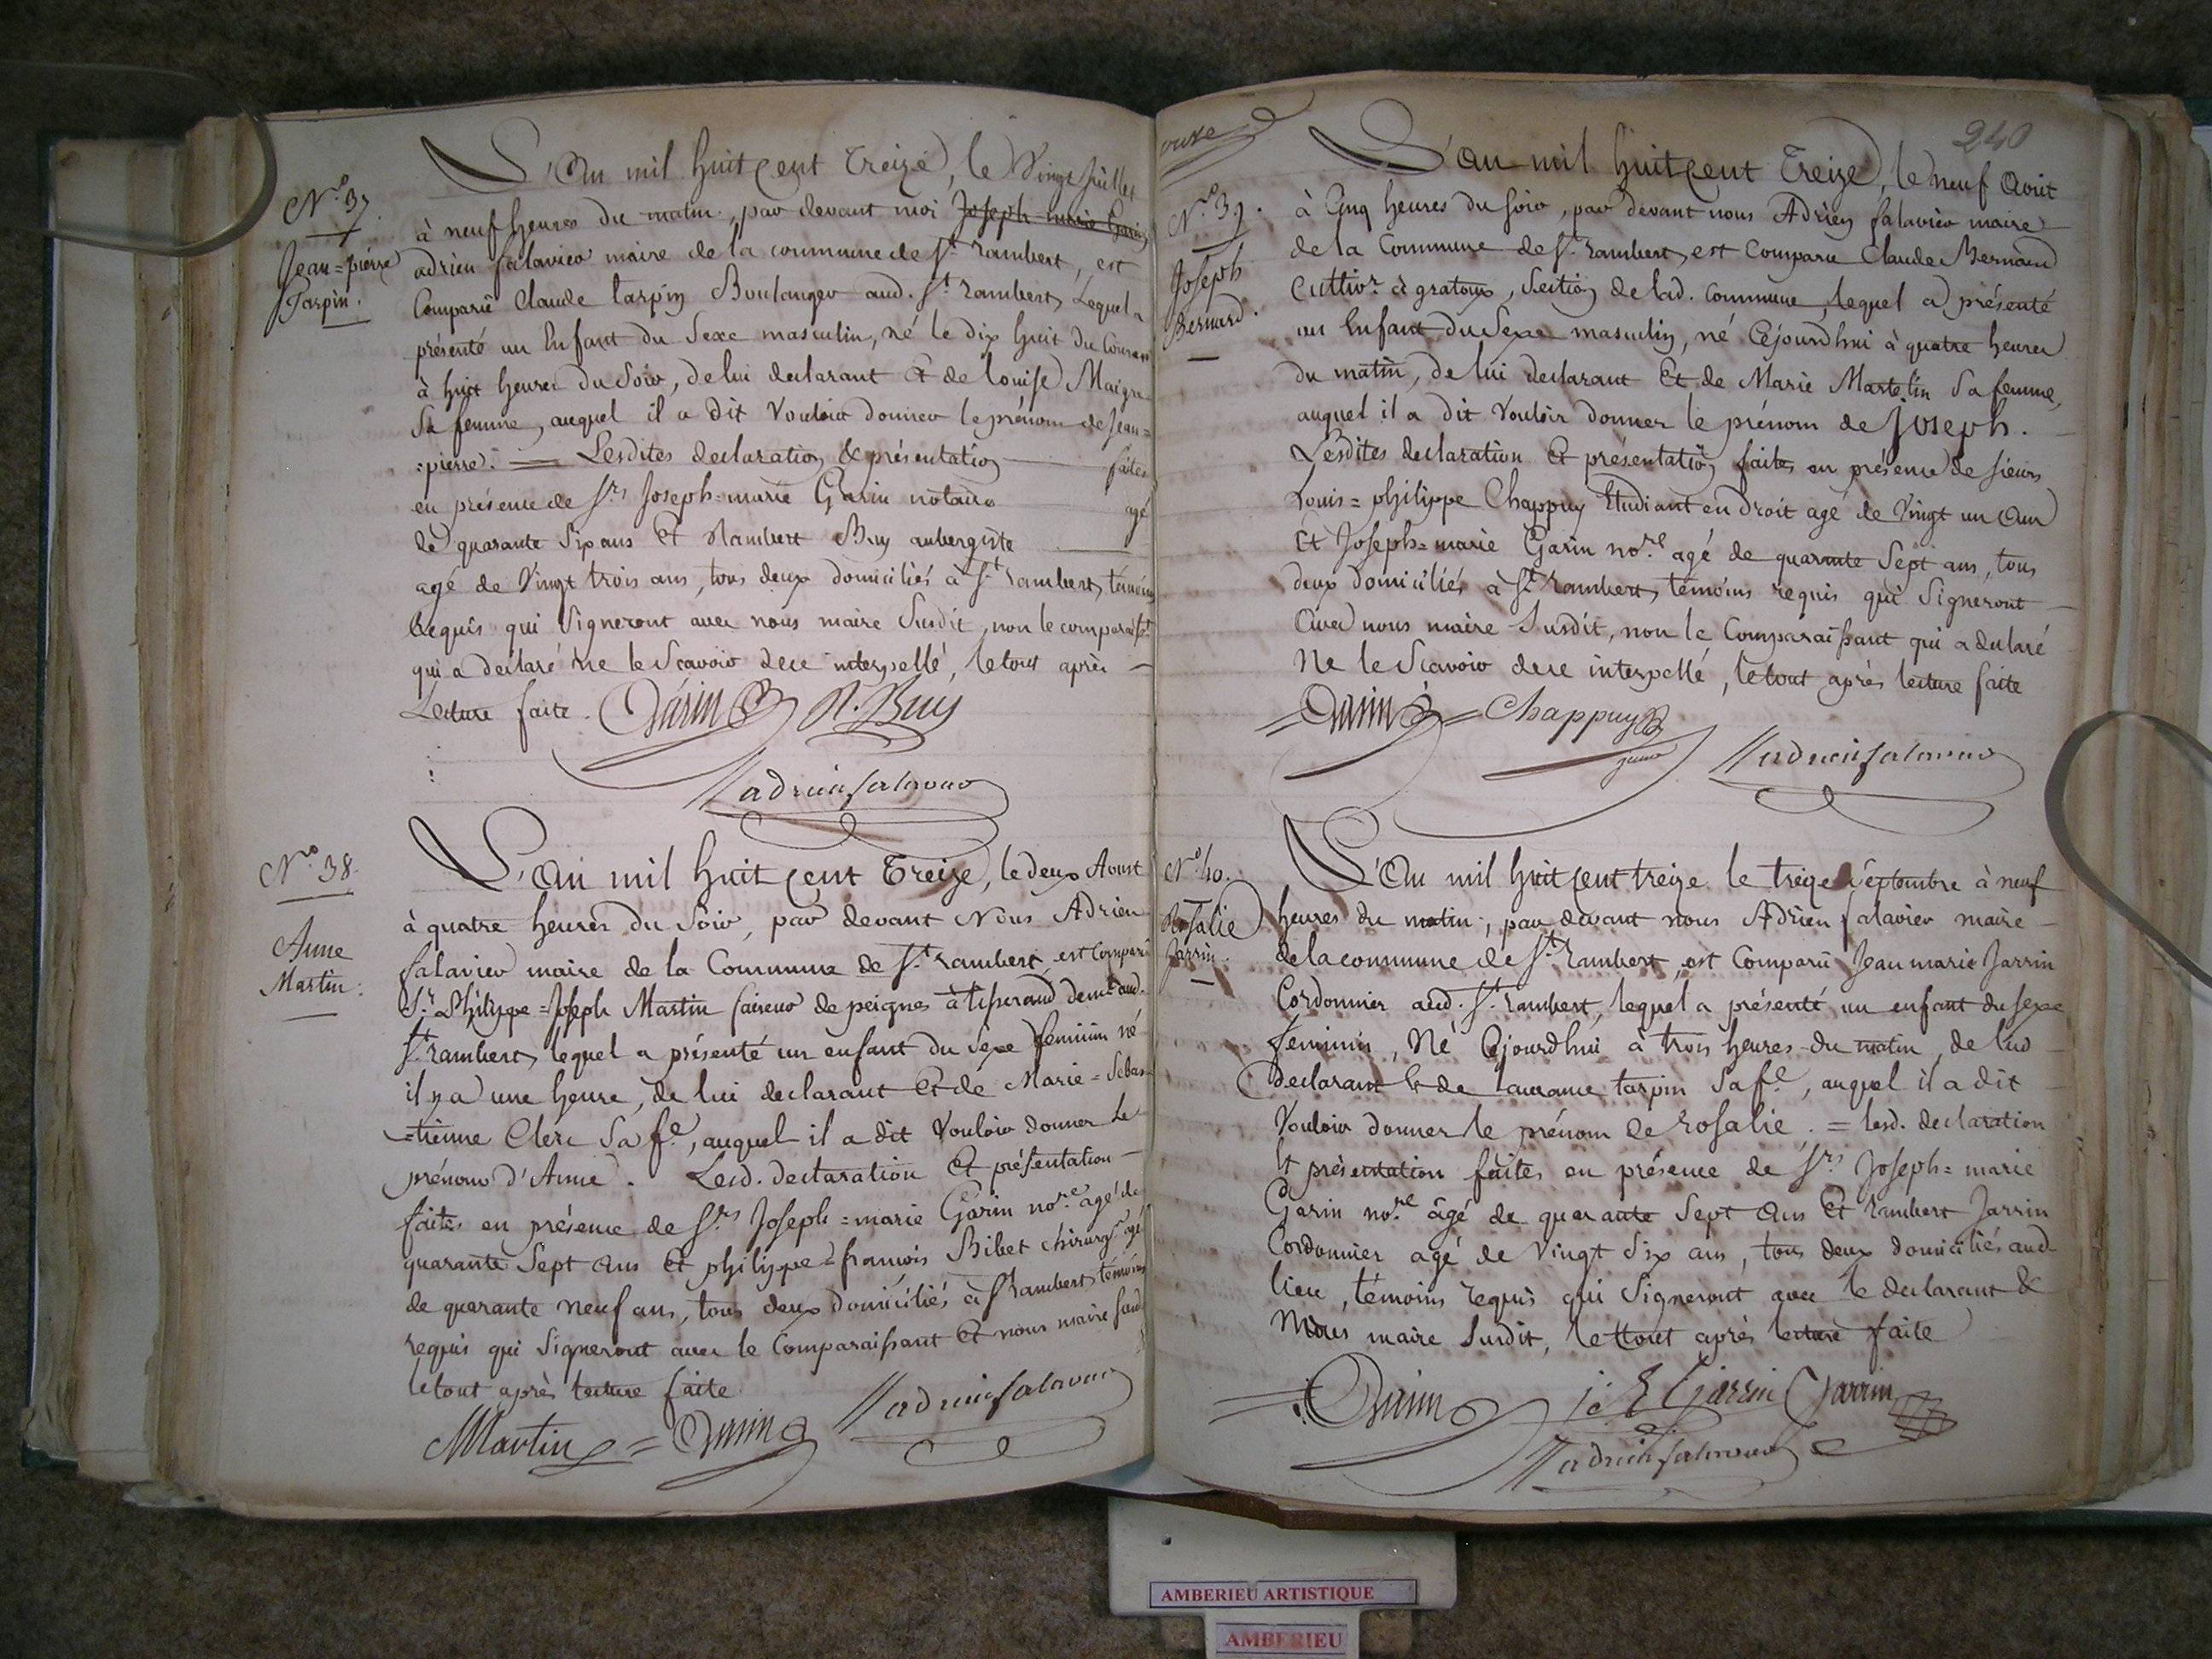 N.º 37.
Jean=pierre
Tarpin.
L'an mil huit cent treize, le Vingt juillet
à neuf heures du matin, par devant moi Joseph marie Garin
adrien falavier maire de la commune de St. rambert, est
Comparû Claude tarpin Boulanger aud. St. rambert, Lequel a
présenté un Enfant du Sexe masculin, né le dix huit du Courant
à huit heures du Soir, de lui declarant Et de Louise Maigre
Sa femme, auquel il a dit Vouloir donner le prénom de Jean=
=pierre. Lesdites declaration & présentation faites
en présence de Srs. Joseph=marie Garin notaire agé
de quarante Six ans Et Rambert Buy aubergiste
agé de Vingt trois ans, tous deux domiciliés à St. rambert, témoins
Requis qui Signeront avec nous maire Susdit, non le comparaisst.
qui a declaré ne le Scavoir dece interpellé, le tout après
Lecture faite. Garin R. Buy
adrien falavier
N.º 38.
Anne
Martin.
L'an mil huit cent treize, le deux Aoust
à quatre heures du Soir, par devant Nous Adrien
falavier maire de la Commune de St. rambert, est Comparû
Sr. Philippe=Joseph Martin faiseur de peignes à demt. aud.
St. rambert, lequel a présenté un enfant du Sexe feminin né
il y a une heure, de lui declarant Et de Marie=Sebas=
=tienne Clerc Sa fe., auquel il a dit Vouloir donner Le
prénom d'Anne. Lesd. declaration Et présentation
faites en présence de Srs. Joseph=marie Garin nore. agé de
quarante Sept ans Et philippe=francois Bibet chirurgn. agé
de quarante neuf ans, tous deux domiciliés à St. rambert, témoins
requis qui Signeront avec le Comparaissant Et nous maire susd.
le tout après lecture faite
adrien falavier
Martin Garin
240
N.º 39.
Joseph
Bernard.
L'an mil huit cent Treize, le neuf Aout
à Cinq heures du soir, par devant nous Adrien falavier maire
de la Commune de St. rambert, est Comparu Claude Bernard
Cultivr. à gratoux, Section de lad. Commune, lequel a présenté
un Enfant du Sexe masculin, né Cejourdhui à quatre heures
du matin, de lui declarant Et de Marie Martelin Sa femme,
auquel il a dit Vouloir donner le prénom de Joseph.
Lesdites declaration Et présentation faites en présence de sieurs
Louis=philippe Chappuy Etudiant en droit agé de Vingt un ans
Et Joseph=marie Garin nore. agé de quarante Sept ans, tous
deux domiciliés à St. rambert, témoins requis qui Signeront
avec nous maire Susdit, non le Comparaissant qui a declaré
Ne le Scavoir dece interpellé, le tout après lecture faite
Garin Chappuy
adrien falavier
N.º 40.
Rosalie
Jarrin.
L'an mil huit cent treize le treize Septembre à neuf
heures du matin, par devant nous Adrien falavier maire
de la commune de St. rambert, est Comparû Jean marie Jarrin
Cordonnier aud. St. rambert, lequel a présenté un enfant du sexe
feminin, Né Cejourdhui à trois heures du matin, de lui
declarant Et de Laurance tarpin Sa fe., auquel il a dit
Vouloir donner le prénom de rosalie. = Lesd. declaration
Et présentation faites en présence de Srs. Joseph=marie
Garin nore. âgé de quarante Sept ans Et rambert Jarrin
Cordonnier agé de Vingt Six ans, tous deux domiciliés aud.
lieu, témoins requis qui Signeront avec le declarant &
Nous maire Susdit, le tout après lecture faite
Garin Jarrin Jarrin
adrien falavier
AMBERIEU ARTISTIQUE
AMBERIEU